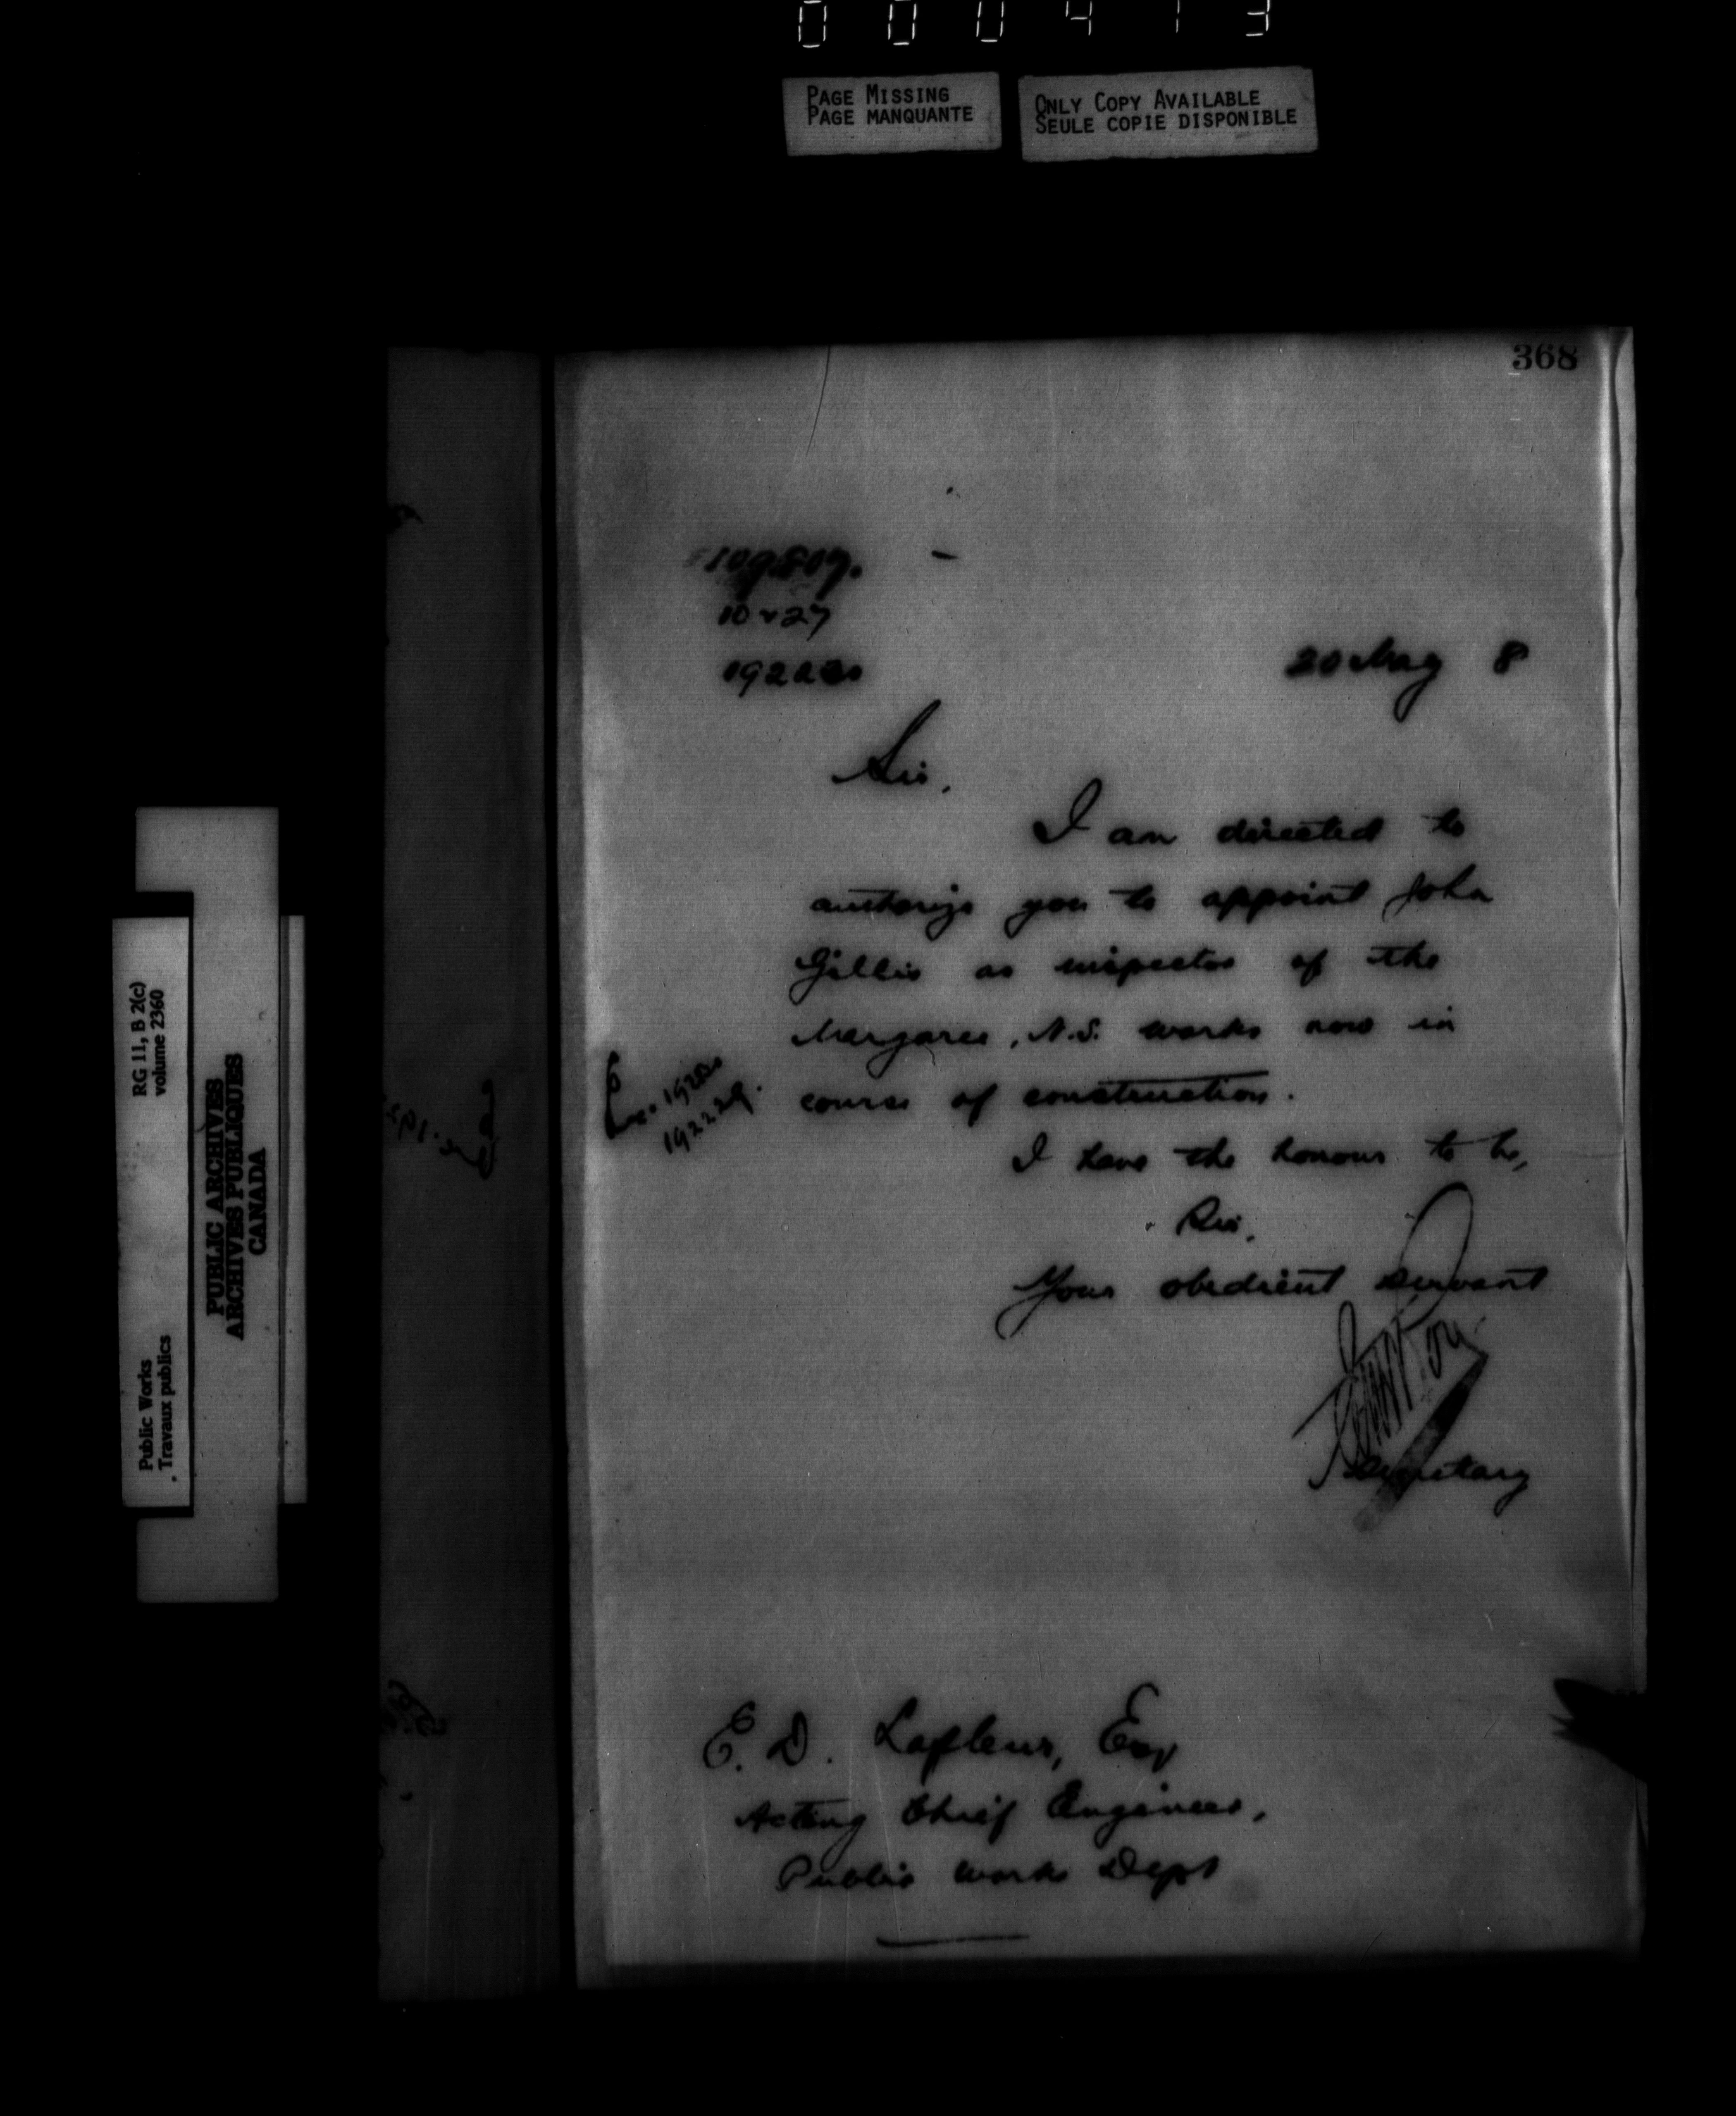 000413
PAGE MISSING
PAGE MANQUANTE
ONLY COPY AVAILABLE
SEULE COPIE DISPONIBLE
368
10 & 27
20 May 8
Sir,
I am directed to
authorize you to appoint John
Gillis as inspector of the
Margaree, N.S. works now in
course of construction.
I have the honour to be,
Sir,
Your obedient servant
Secretary
E. D. Lafleur, Esq
Acting Chief Engineer,
Public Works Dept
RG 11, B 2(c)
volume 2360
Public Works
Travaux publics
PUBLIC ARCHIVES
ARCHIVES PUBLIQUES
CANADA